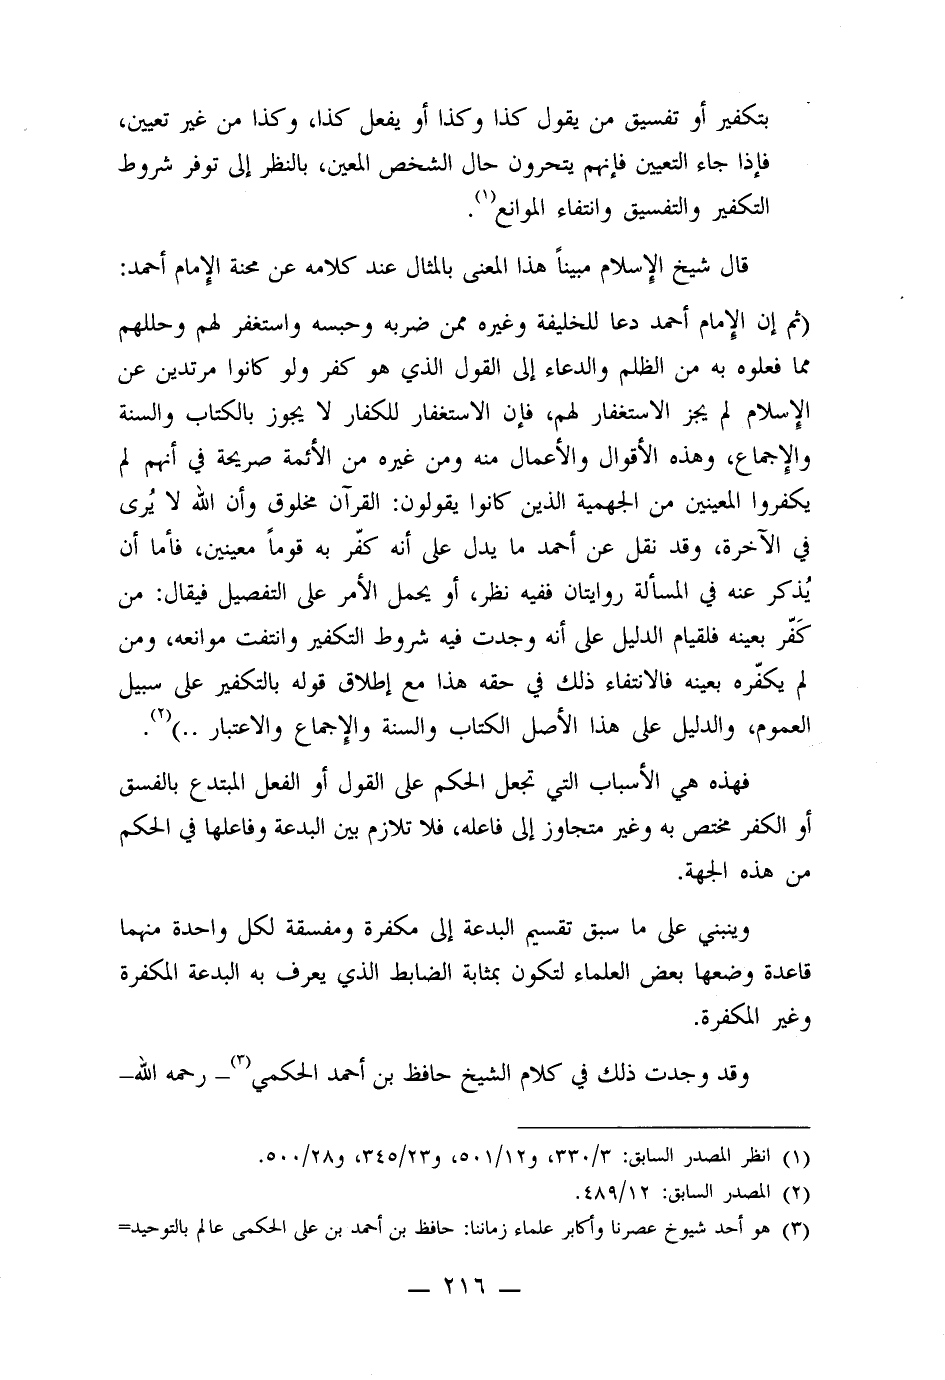 بتكفير أو تفسيق من يقول كذا وكذا أو يفعل كذا، وكذا من غير تعيين،
فإذا جاء التعيين فإنهم يتحرون حال الشخص المعين، بالنظر إلى توفر شروط
التكفير والتفسيق وانتفاء الموانع(١).
قال شيخ الإسلام مبيناً هذا المعنى بالمثال عند كلامه عن محنة الإمام أحمد:
(ثم إن الإمام أحمد دعا للخليفة وغيره ممن ضربه وحبسه واستغفر لهم وحللهم
مما فعلوه به من الظلم والدعاء إلى القول الذي هو كفر ولو كانوا مرتدين عن
الإسلام لم يجز الاستغفار لهم، فإن الاستغفار للكفار لا يجوز بالكتاب والسنة
والإجماع، وهذه الأقوال والأعمال منه ومن غيره من الأئمة صريحة في أنهم لم
يكفروا المعينين من الجهمية الذين كانوا يقولون: القرآن مخلوق وأن الله لا يُرى
في الآخرة، وقد نقل عن أحمد ما يدل على أنه كفّر به قوماً معينين، فأما أن
يُذكر عنه في المسألة روايتان ففيه نظر، أو يحمل الأمر على التفصيل فيقال: من
كَفّر بعينه فلقيام الدليل على أنه وجدت فيه شروط التكفير وانتفت موانعه، ومن
لم يكفّره بعينه فالانتفاء ذلك في حقه هذا مع إطلاق قوله بالتكفير على سبيل
العموم، والدليل على هذا الأصل الكتاب والسنة والإجماع والاعتبار ..)(٢).
فهذه هي الأسباب التي تجعل الحكم على القول أو الفعل المبتدع بالفسق
أو الكفر مختص به وغير متجاوز إلى فاعله، فلا تلازم بين البدعة وفاعلها في الحكم
من هذه الجهة.
وينبني على ما سبق تقسيم البدعة إلى مكفرة ومفسقة لكل واحدة منهما
قاعدة وضعها بعض العلماء لتكون بمثابة الضابط الذي يعرف به البدعة المكفرة
وغير المكفرة.
وقد وجدت ذلك في كلام الشيخ حافظ بن أحمد الحكمي(٣)ـ رحمه الله ـ
(١) انظر المصدر السابق: ٣٣٠/٣، و٥٠١/١٢، و٣٤٥/٢٣، و٥٠٠/٢٨.
(٢) المصدر السابق: ٤٨٩/١٢.
(٣) هو أحد شيوخ عصرنا وأكابر علماء زماننا: حافظ بن أحمد بن على الحكمى عالم بالتوحيد=
— ٢١٦ —